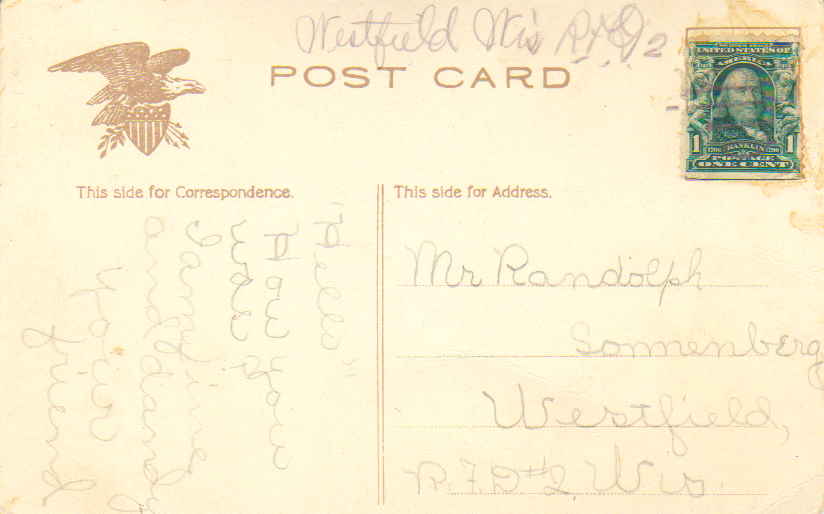 Westfield Wis R.F.D. 2
POST CARD
UNITED STATES OF
AMERICA
1 1
1706 FRANKLIN 1790
POSTAGE
ONE CENT
This side for Correspondence.
"Hello"
How you
was
I am fine
and dandy
your
friend
This side for Address.
Mr Randolph
Sonnenberg
Westfield,
R.F.D #2 Wis.